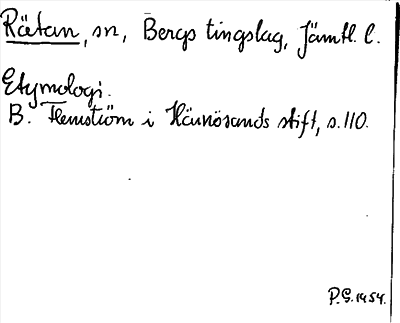 Rätan, sn, Bergs tingslag, Jämtl. l.
Etymologi.
B. Flemström i Härnösands stift, s. 110.
P.G. 1954.